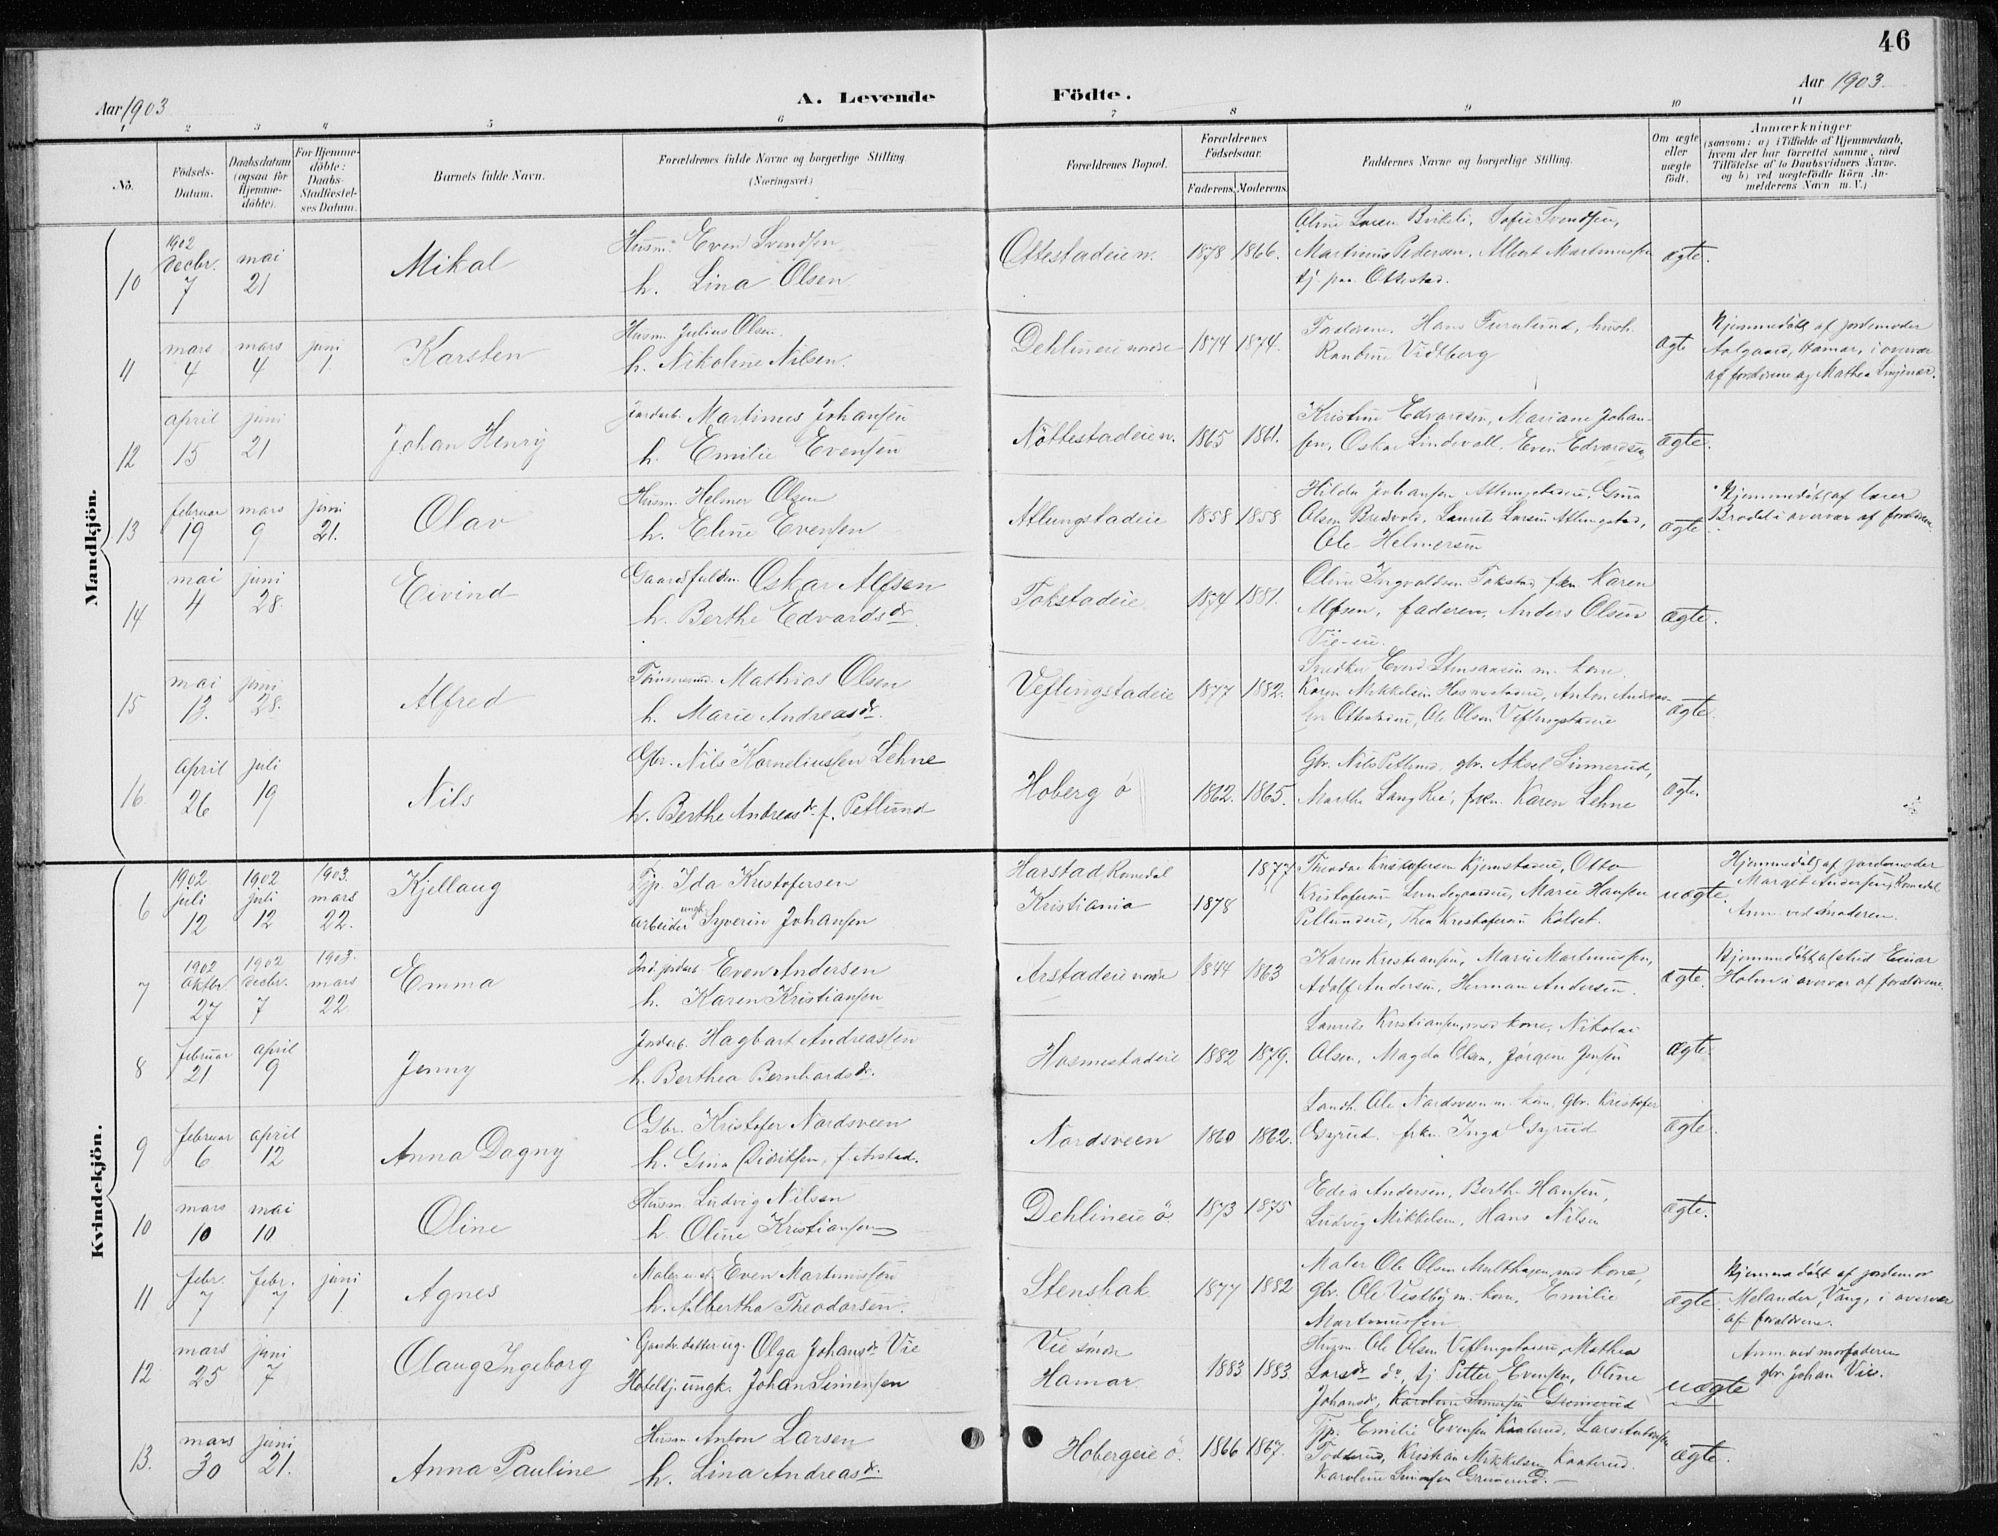 46
Aar 1903
A. Levende Födte.
Aar 1903
1 2 3 4 5 6 7 8 9 10 11
No.
Födsels-Datum.
Daabsdatum (ogsaa for Hjemme-döbte).
For Hjemme-döbte: Daabs-Stadfæstel-ses Datum.
Barnets fulde Navn.
Forældrenes fulde Navne og borgerlige Stilling (Næringsvei.)
Forældrenes Bopæl.
Forældrenes Födselsaar.
Faderens. Moderens.
Faddernes Navne og borgerlige Stilling.
Om ægte eller uægte födt.
Anmærkninger
(saasom: a) i Tilfælde af Hjemmedaab, hvem der har forrettet samme, med Tilföielse af to Daabsvidners Navne. og b) ved uægtefödte Börn An-melderens Navn m. V.)
Mandkjön.
10 1902 decbr. 7 mai 21 Mikal
Husm. Even Svendsen
h. Lina Olsen
Ottestadeie n. 1878 1866.
Oline Larsen Birkeli, Sofie Svendsen,
Martinus Pedersen, Albert Martinussen
tj. paa Ottestad.
ægte.
11 mars 4 mars 4 juni 1. Karsten
Husm. Julius Olsen
h. Nikoline Nilsen.
Dehlineie nordre 1874 1874.
Faderene, Hans Furulund, hush.
Randine Vidtberg
ægte
Hjemmedöbt af jordemoder
Aalgaard, Hamar, i overvær
af forældrene og Mathea
12 april 15 juni 21 Johan Henry
Jordarb. Martinus Johansen
h. Emilie Evensen
Nöttestadeie n. 1865 1861.
Kristine Edvardsen, Mariane Johan-
sen, Oskar Lindvall, Even Edvardsen
ægte.
13 februar 19 mars 9 juni 21. Olav
Husm. Helmer Olsen
h. Eline Evensen
Atlungstadeie 1858 1858
Hilda Johansen Atlungstadeie, Gina
Olsen Bredvold, Laurits Larsen Atlungstad,
Ole Helmersen
ægte.
Hjemmedöbt af lærer
Brodal i overvær af forældrene.
14 mai 4 juni 28. Eivind
Gaardsfuldm. Oskar Alfsen
h. Berthe Edvardsdr.
Tokstadeie 1874 1881.
Oline Ingvaldsen Tokstad, frkn Karen
Alfsen, faderen, Anders Olsen
Vie-eie.
ægte.
15 mai 13. juni 28. Alfred
Tömmerm. Mathias Olsen
h. Marie Andreasdr.
Veflingstadeie 1877 1882.
Snedker Evend Stensaasen m. kone,
Karen Mikkelsen Hosmestadeie, Anton Andreas-
sen Ottestadeie, Ole Olsen Veflingstadeie
ægte.
16 april 26 juli 19 Nils
Gbr. Nils Korneliussen Lehne
h. Berthe Andreasdr. f. Petlund
Hoberg ö 1862. 1865.
Gbr. Nils Petlund, gbr. Aksel Simerud,
Marthe Langkie, frkn. Karen Lehne
ægte.
Kvindekjön.
6 1902 juli 12 1902 juli 12 1903. mars 22. Kjellaug
Tjp. Ida Kristofersen
arbeider ungk. Syverin Johansen
Harstad Romedal
Kristiania 1878 1877
Theodor Kristofersen Kjemstadeie, Otto
Kristofersen Lundgaardeie, Marie Hansen
Petlundeie, Thea Kristofersen Kolset.
uægte.
Hjemmedöbt af jordemoder
Margit Andersen, Romedal
Anm. ved moderen.
7 1902 oktbr. 27 1902 decbr. 7 1903. mars 22 Emma
Ind. jordarb. Even Andersen
h. Karen Kristiansen
Arstadeie nordre 1844 1863
Karen Kristiansen, Marie Martinussen,
Adolf Andersen, Herman Andersen.
ægte.
Hjemmedöbt af stud Einar
Holm i overvær af forældrene.
8 februar 21 april 9 Jenny
Jordarb. Hagbart Andreassen
h. Berthea Bernhardsdr.
Hosmestadeie 1882 1879.
Laurits Kristiansen med kone, Nikolai
Olsen, Magda Olsen, Jörgen Jensen
ægte.
9 februar 6 april 12 Anna Dagny
Gbr. Kristofer Nordsveen
h. Gina Didriksen, f. Arstad.
Nordsveen 1860 1862.
Landh. Ole Nordsveen m. kone, gbr. Kristofer
Gsyrud, frkn. Inga Gsyrud
ægte.
10 mars 10 mai 10 Oline
Husm. Ludvig Nilsen
h. Oline Kristiansen
Dehlineie ö. 1873 1875
Edia Andersen, Berthe Hansen,
Ludvig Mikkelsen, Hans Nilsen
ægte.
11 febr. 7 febr. 7 juni 1. Agnes
Maler Even Martinussen
h. Albertha Theodorsen.
Stenshak 1877 1882
Maler Ole Olsen Multhagen med kone,
gbr. Ole Vestby m. kone, Emilie
Martinussen.
ægte.
Hjemmedöbt af jordemor
Melander, Vang, i overvær
af forældrene.
12 mars 25 juni 7 Olaug Ingeborg
Gaardsdatter ug. Olga Johansdr. Vie
Hoteltj. ungk. Johan Simensen
Vie söndre
Hamar. 1883 1883.
Husm. Ole Olsen Veflingstadeie, Mathea
Larsdr. do, tj. Petter Evensen, Oline
Johansdr, Karoline Simensen Grimerud
uægte
Anm. ved morfaderen
gbr. Johan Vie.
13. mars 30 juni 21. Anna Pauline
Husm. Anton Larsen
h. Lina Andreasdr.
Hobergeie ö. 1866 1867.
Tjp. Emilie Evensen Kaaterud, Lars Antonsen
Todderud, Kristian Mikkelsen Kaaterud.
Karoline Simensen Grimerud.
ægte.